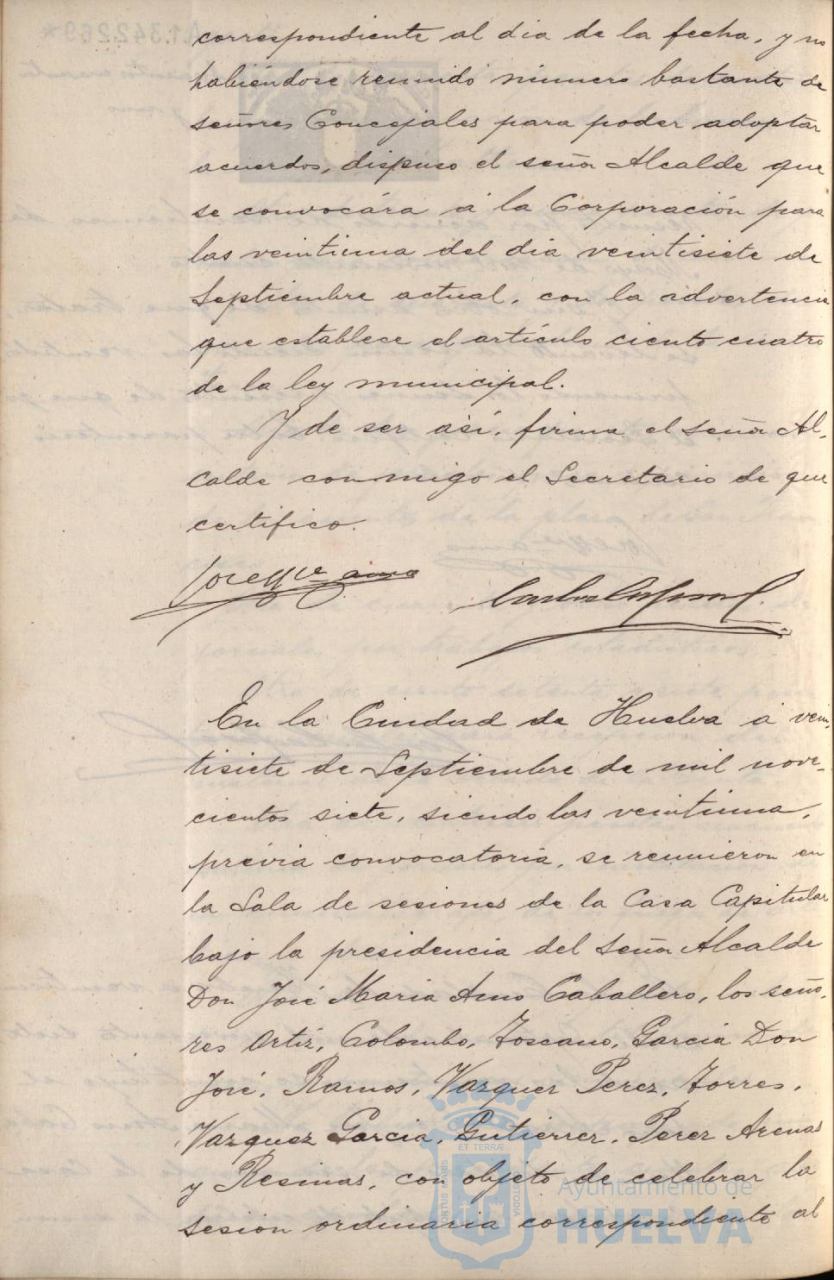 correspondiente al dia de la fecha, y no
habiéndose reunido número bastante de
señores Concejales para poder adoptar
acuerdos, dispuso el señor Alcalde que
se convocára á la Corporación para
las veintiuna del dia veintisiete de
Septiembre actual, con la advertencia
que establece el artículo ciento cuatro
de la ley municipal.
Y de ser así, firma el señor Al-
calde conmigo el Secretario de que
certifico.
En la Ciudad de Huelva á vein-
tisiete de Septiembre de mil nove-
cientos siete, siendo las veintiuna,
prévia convocatoria, se reunieron en
la Sala de sesiones de la Casa Capitular
bajo la presidencia del señor Alcalde
Don José Maria Amo Caballero, los seño-
res Ortiz, Colombo, Toscano, Garcia Don
José, Ramos, Vazquez Perez, Torres,
Vazquez Garcia, Gutierrez, Perez Arenas
y Resinas, con objeto de celebrar la
sesion ordinaria correspondiente al
Ayuntamiento de
HUELVA